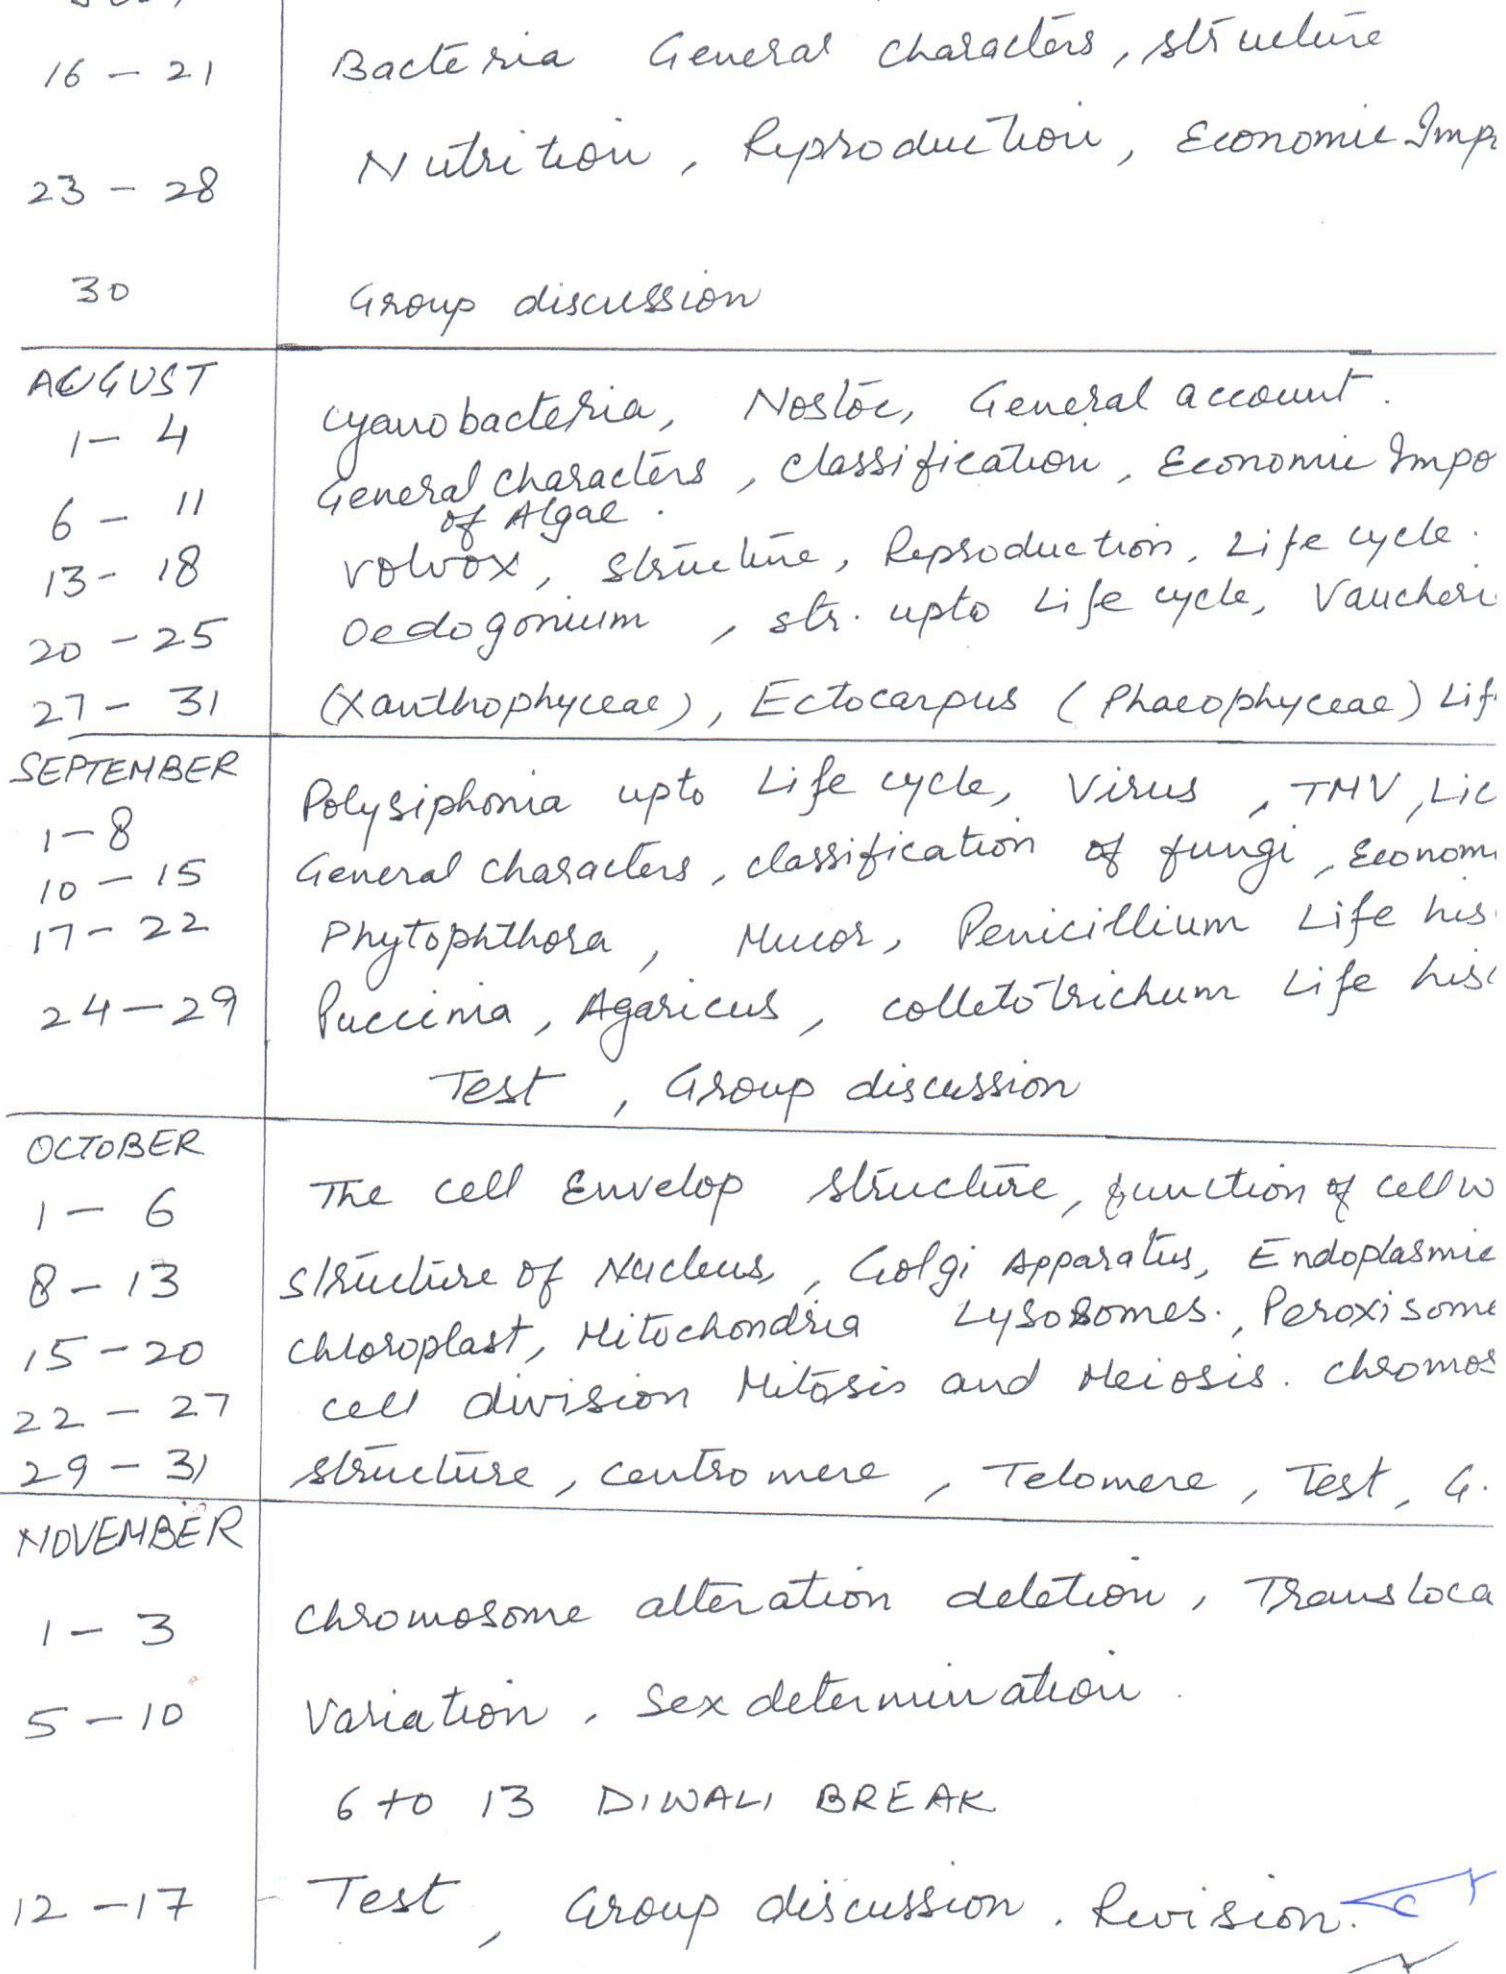 16 - 21 Bacteria General characters, structure
23 - 28 Nutrition, Reproduction, Economic Imp
30 Group discussion
AUGUST
1 - 4 Cyanobacteria, Nostoc, General account.
6 - 11 General characters, classification, Economic Impo
of Algae.
13 - 18 Volvox, structure, Reproduction, Life cycle.
20 - 25 Oedogonium, str. upto Life cycle, Vaucheri
27 - 31 (Xanthophyceae), Ectocarpus (Phaeophyceae) Lif
SEPTEMBER
1 - 8 Polysiphonia upto Life cycle, Virus, TMV, Lic
10 - 15 General characters, classification of fungi, Econom
17 - 22 Phytophthora, Mucor, Penicillium Life his
24 - 29 Puccinia, Agaricus, colletotrichum Life his
Test, Group discussion
OCTOBER
1 - 6 The cell Envelop structure, function of cell w
8 - 13 structure of Nucleus, Golgi Apparatus, Endoplasmic
15 - 20 chloroplast, Mitochondria Lysosomes., Peroxisome
22 - 27 cell division Mitosis and Meiosis. chromos
29 - 31 structure, centromere, Telomere, Test, G.
NOVEMBER
1 - 3 Chromosome alteration deletion, Transloca
5 - 10 Variation, Sex determination.
6 to 13 DIWALI BREAK
12 - 17 Test, Group discussion. Revision.